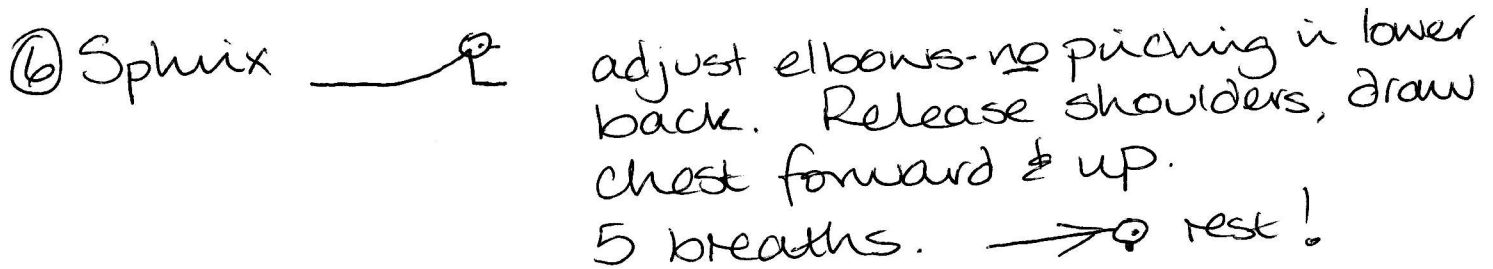 ⑥ Sphinx adjust elbows - no pinching in lower
back. Release shoulders, draw
chest forward & up.
5 breaths. rest!